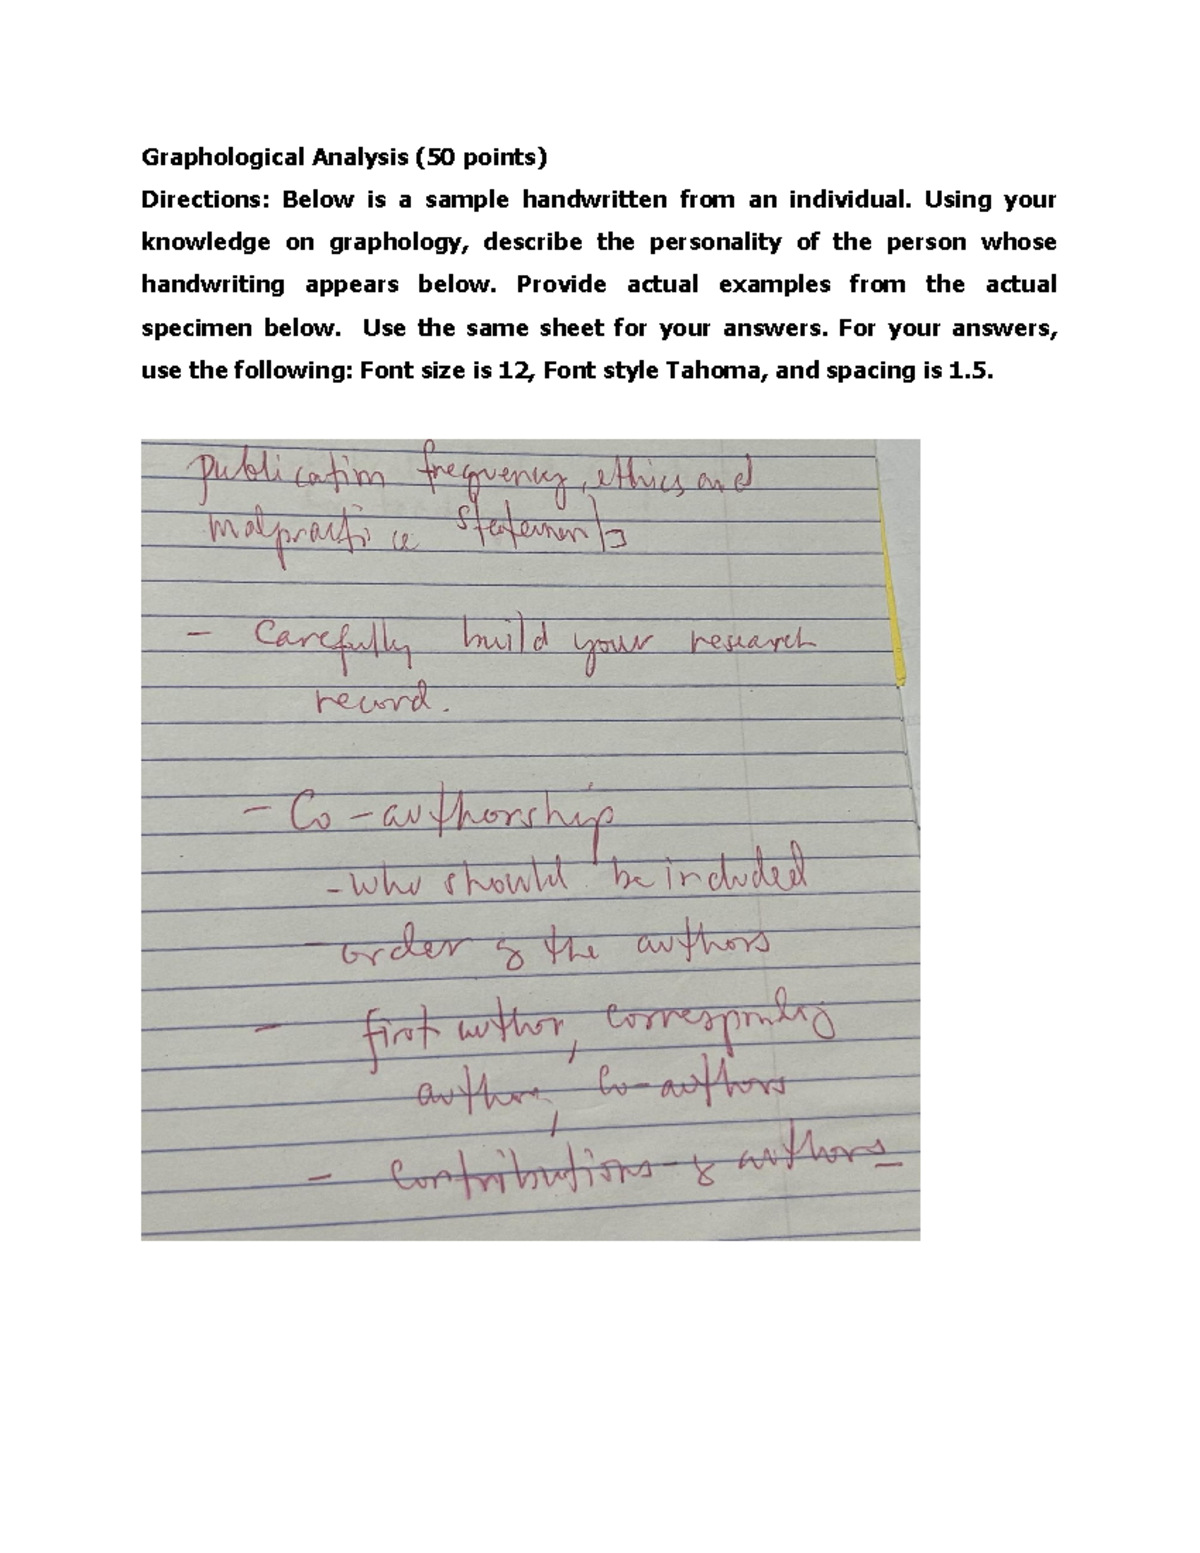 Graphological Analysis (50 points)
Directions: Below is a sample handwritten from an individual. Using your
knowledge on graphology, describe the personality of the person whose
handwriting appears below. Provide actual examples from the actual
specimen below. Use the same sheet for your answers. For your answers,
use the following: Font size is 12, Font style Tahoma, and spacing is 1.5.
publication frequency, ethics and
malpractice statements
- Carefully build your research
record.
- Co-authorship
- who should be included
- order of the authors
- first author, corresponding
author, Co-authors
- Contributions of authors